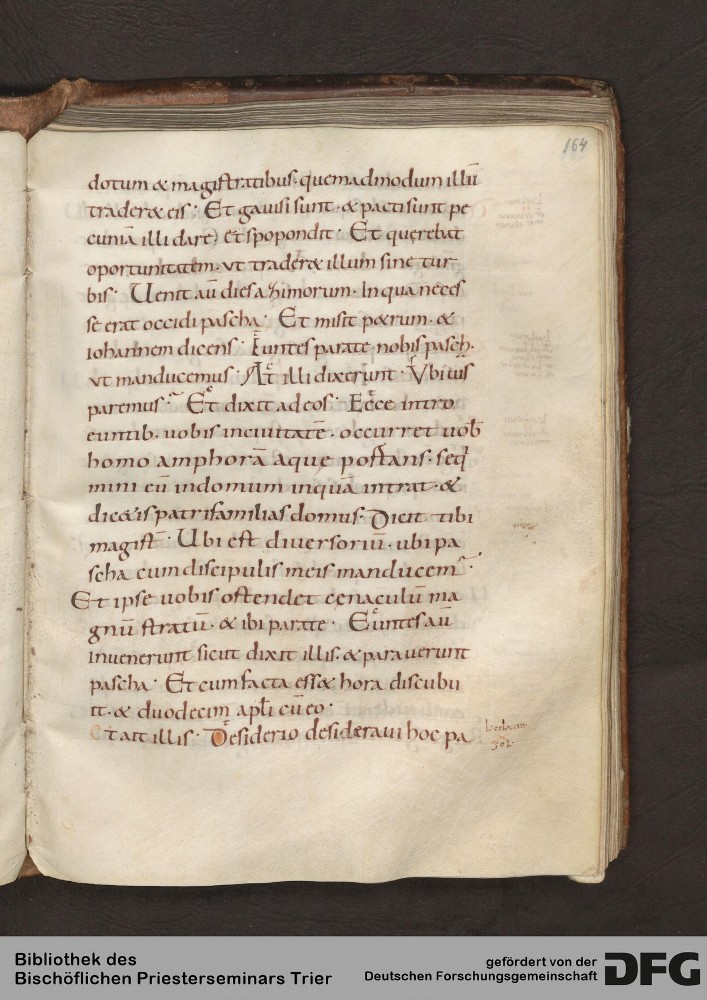 164
dotum & magistratibus. quemadmodum illū
trader& eis; Et gauisi sunt. & pacti sunt pe
cuniā illi dare; et spopondit. Et querebat
oportunitatem. ut trader& illum sine tur
bis. Uenit aū dies azimorum. In qua neces
se erat occidi pascha. Et misit p&rum. &
iohannem dicens. Euntes parate nobis pasch.
ut manducemus. At illi dixerunt. Ubi uis
paremus. Et dixit ad eos. Ecce intro
euntib. uobis in ciuitatē. occurret uob
homo amphorā aque portans. seq
mini eū in domum in quā intrat. &
dic&is patrifamilias domus. Dicit tibi
magist. Ubi est diuersoriū. ubi pa
scha cum discipulis meis manducem
Et ipse uobis ostendet cenaculū ma
gnū stratū. & ibi parate. Euntes aū
inuenerunt sicut dixit illis. & parauerunt
pascha. Et cum facta ess& hora discubu
it. & duodecim apłi cū eo.
Et ait illis. Desiderio desideraui hoc pa
Bibliothek des
Bischöflichen Priesterseminars Trier
gefördert von der
Deutschen Forschungsgemeinschaft
DFG